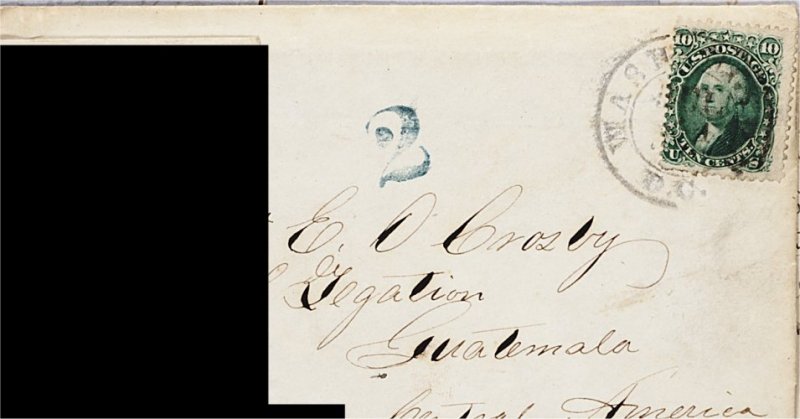 10 10
U.S. POSTAGE
TEN CENTS.
U S
WASH
D.C.
2
E. O Crosby
Legation
Guatemala
Central America